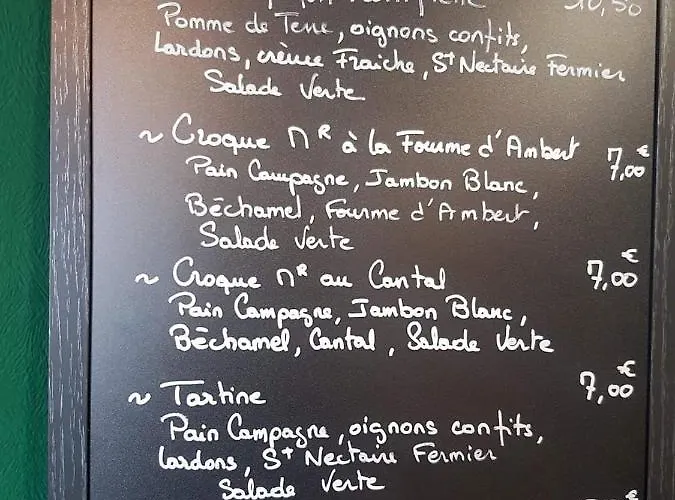 10,50
Pomme de Terre, oignons confits,
Lardons, crème Fraiche, St Nectaire Fermier
Salade Verte
~ Croque MR à la Fourme d'Ambert 7,00 €
Pain Campagne, Jambon Blanc,
Béchamel, Fourme d'Ambert,
Salade Verte
~ Croque MR au Cantal 7,00 €
Pain Campagne, Jambon Blanc,
Béchamel, Cantal, Salade Verte
~ Tartine 7,00 €
Pain Campagne, oignons confits,
Lardons, St Nectaire Fermier
Salade Verte
€